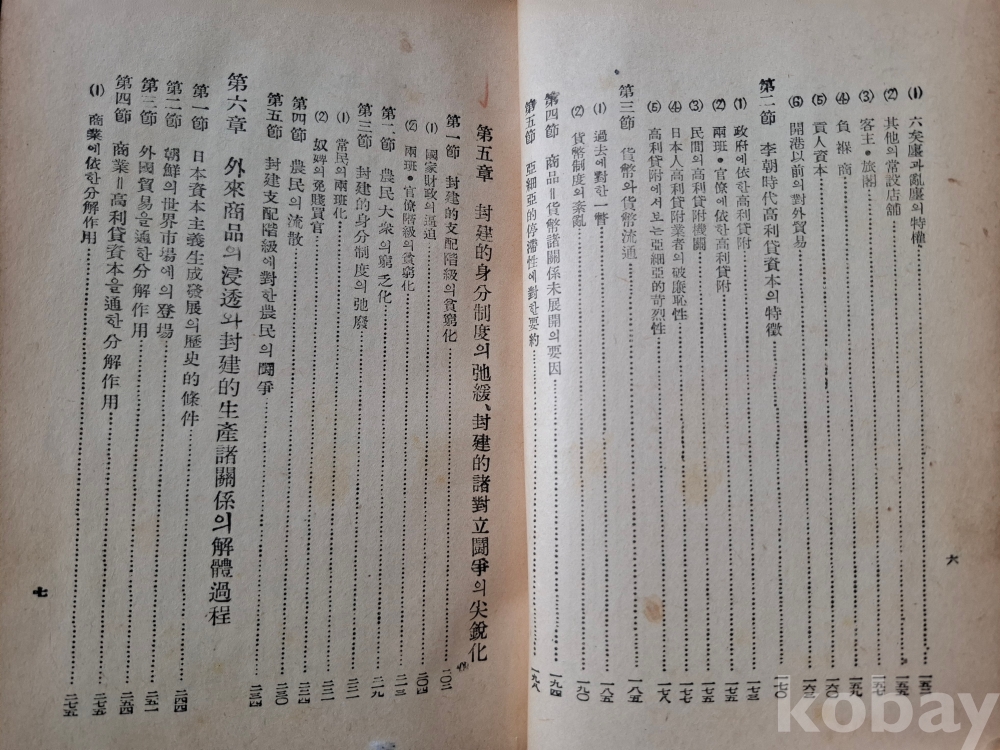 (1) 六矣廛과亂廛의特權 一五三
(2) 其他의常設店舖 一五六
(3) 客主・旅閣 一五七
(4) 負褓商 一五九
(5) 貢人資本 一六〇
(6) 開港以前의對外貿易 一六三
第二節 李朝時代高利貸資本의特徵 一七〇
(1) 政府에依한高利貸附 一七三
(2) 兩班・官僚에依한高利貸附 一七五
(3) 民間의高利貸附機關 一七五
(4) 日本人高利貸附業者의破廉恥性 一七七
(5) 高利貸附에서보는亞細亞的苛烈性 一七八
第三節 貨幣와貨幣流通 一八五
(1) 過去에對한一瞥 一八五
(2) 貨幣制度의紊亂 一九〇
第四節 商品=貨幣諸關係未展開의要因 一九四
第五節 亞細亞的停滯性에對한要約 一九八
六
第五章 封建的身分制度의弛緩、封建的諸對立鬪爭의尖銳化
第一節 封建的支配階級의貧窮化 二〇三
(1) 國家財政의逼迫 二〇四
(2) 兩班・官僚階級의貧窮化 二一三
第二節 農民大衆의窮乏化 二一九
第三節 封建的身分制度의弛廢 二二一
(1) 常民의兩班化 二二一
(2) 奴婢의免賤買官
第四節 農民의流散 二三〇
第五節 封建支配階級에對한農民의鬪爭 二三四
第六章 外來商品의浸透와封建的生產諸關係의解體過程
第一節 日本資本主義生成發展의歷史的條件
第二節 朝鮮의世界市場에의登場 二四四
第三節 外國貿易을通한分解作用 二五一
第四節 商業=高利貸資本을通한分解作用 二五四
(1) 商業에依한分解作用 二七五
七
kobay